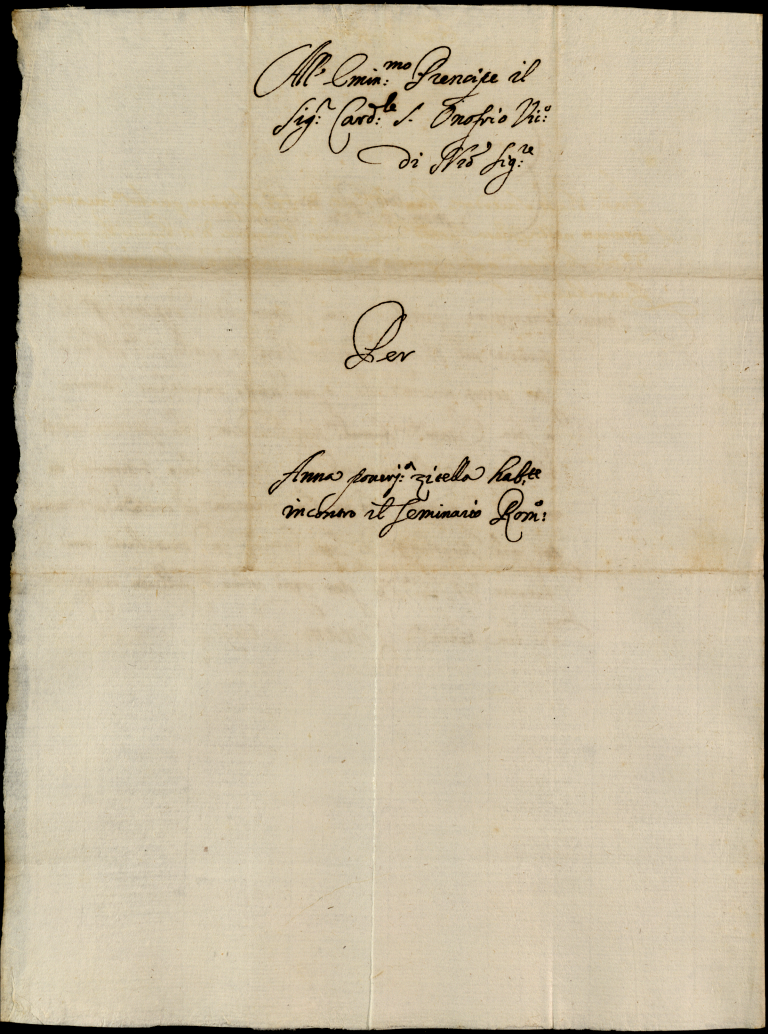 All' Emin:mo Prencipe il
Sig.r Card:le S. Onofrio Vic:o
di N.ro Sig:re
Per
Anna pover:a zitella hab:te
incontro il Seminario Rom:o